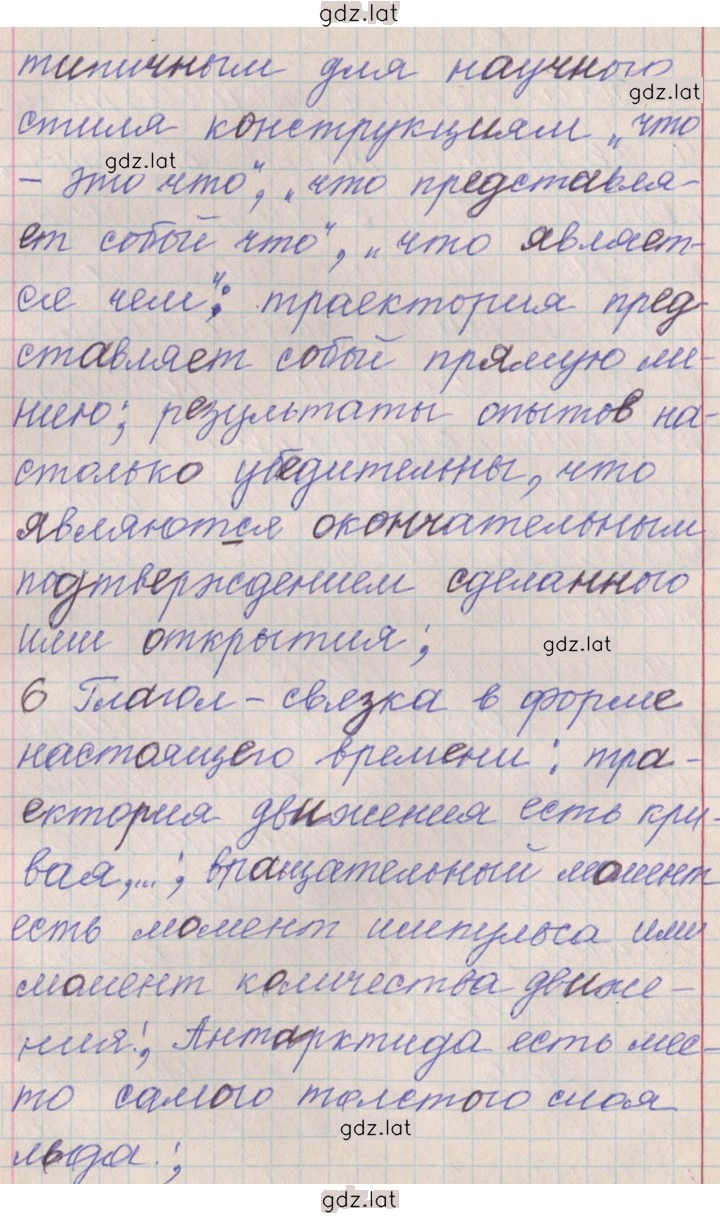 gdz.lat
типичным для научного
gdz.lat
стиля конструкциям „что
gdz.lat
– это что", „что представля-
ет собой что", „что являет-
ся чем": траектория пред-
ставляет собой прямую ли-
нию; результаты опытов на-
столько убедительны, что
являются окончательным
подтверждением сделанного
ими открытия;
gdz.lat
6 Глагол – связка в форме
настоящего времени: тра-
ектория движения есть кри-
вая,...; вращательный момент
есть момент импульса или
момент количества движе-
ния!; Антарктида есть мес-
то самого толстого слоя
gdz.lat
льда.;
gdz.lat